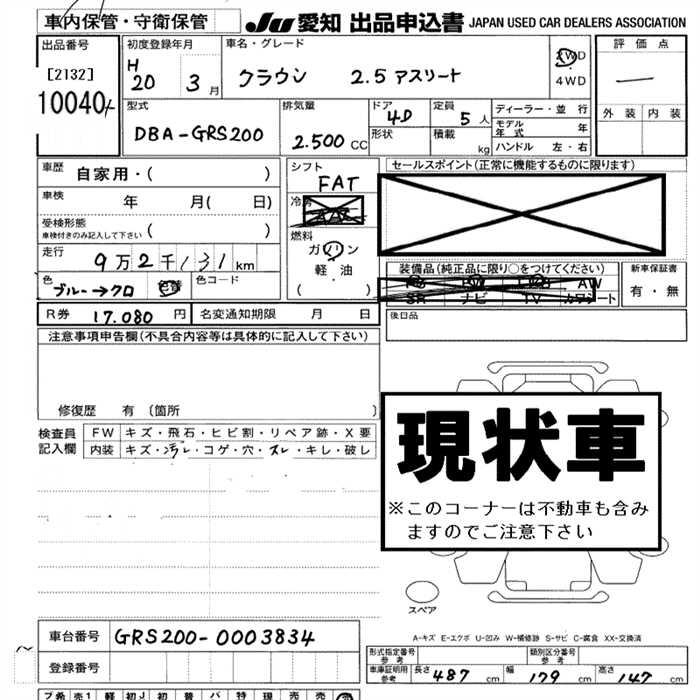 車内保管・守衛保管 JU 愛知 出品申込書 JAPAN USED CAR DEALERS ASSOCIATION
出品番号
[2132]
10040
初度登録年月
H 20 3 月
車名・グレード
クラウン 2.5 アスリート
2WD
4WD
評価点
—
外装 内装
型式
DBA-GRS200
排気量
2.500 CC
ドア
4D
形状
定員
5 人
積載
kg
ディーラー・並行
モデル年式 年
ハンドル 左・右
車歴
自家用・( )
車検 年 月( 日)
受検形態
車検付きのみ記入して下さい ( )
走行
9万2千131km
色
ブルー→クロ
色替
色コード
シフト
FAT
冷房
燃料
ガソリン
軽・油
( )
セールスポイント(正常に機能するものに限ります)
装備品(純正品に限り○をつけてください)
AW
SR ナビ TV カワシート
新車保証書
有・無
R券 17.080 円
名変通知期限 月 日
後日品
注意事項申告欄(不具合内容等は具体的に記入して下さい)
修復歴 有 (箇所 )
検査員記入欄
FW キズ・飛石・ヒビ割・リペア跡・X要
内装 キズ・汚レ・コゲ・穴・スレ・キレ・破レ
現状車
※このコーナーは不動車も含み
ますのでご注意下さい
スペア
A-キズ E-エクボ U-凹み W-補修跡 S-サビ C-腐食 XX-交換済
車台番号 GRS200-0003834
登録番号
形式指定番号
参考
類別区分番号
参考
車庫証明用
参考
長さ 487 cm 幅 179 cm 高さ 147 cm